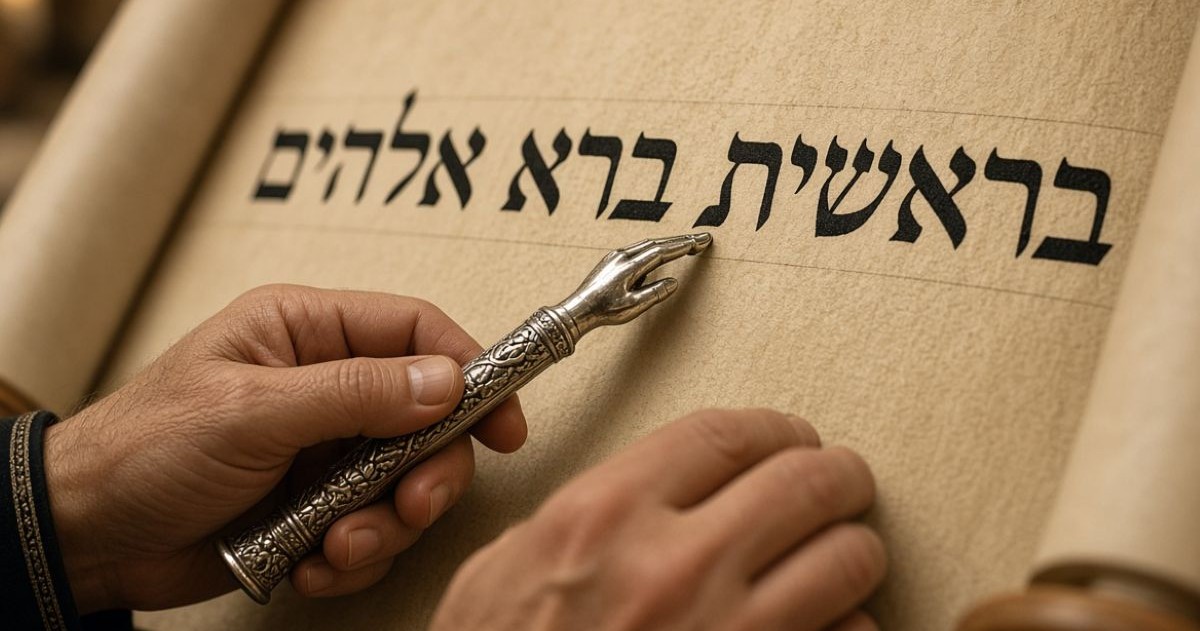 בראשית ברא אלהים